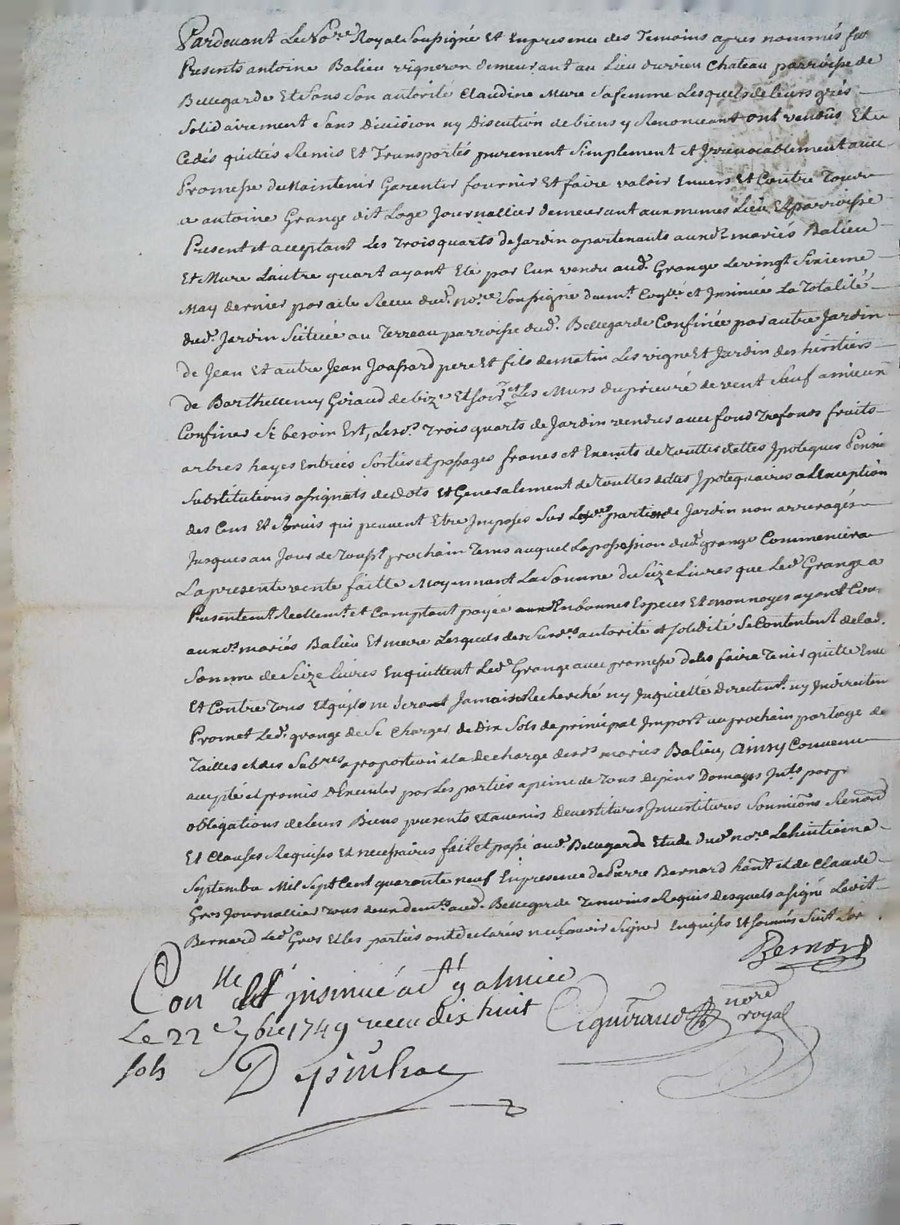 Pardevant Le No.re Royal Soussigné Et En presence des Temoins apres nommés fut
Presents antoine Balieu vigneron demeurant au Lieu du vieu Chateau parroisse de
Bellegarde Et Sous Son autorité Claudine Mure Sa femme Lesquels de leurs grés
Solidairement Sans Division ny Discution de biens y Renonceant ont vendus Et
Cedés quittés Remis Et Transportés purement Simplement et Irrevocablement avec
Promesse de Maintenir Garentir fournir Et faire valoir Envers Et Contre Tous
a antoine Grange dit Loge Journallier demeurant aux memes Lieu Et parroisse
Present et acceptant Les Trois quarts de Jardin apartenants auxd.s mariés Balieu
Et Mure Lautre quart ayant Eté par Eux vendu aud. Grange Le vingt Sixieme
May dernier par acte Receu dud. no.re Soussigné dumt. Con.lé et Insinué La Totalité
dud. Jardin Scituée au Terreau parroisse dud. Bellegarde Confinée par autre Jardin
de Jean Et autre Jean Joassard pere Et fils de matin Les vigne Et Jardin des héritiers
de Barthelemy Giraud de bize Et Soir et Les Murs du prieuré de vent Sauf a mieux
Confiner Si besoin Est, Lesd.s Trois quarts de Jardin vendus avec fond Trefonds fruits
arbres hayes Entrées Sorties et passages francs et Exempts de Touttes dettes Ipoteques Pensio
Substitutions assignats de dots Et Generalement de Touttes dettes Ipotequaires a L'Exception
des Cens Et Servis qui peuvent Etre Imposés Sur Lesd. partie de Jardin non arreragés
Jusques au Jour de Tousst prochain Tems auquel La possession dud. grange Commencera
La presente vente faitte Moyennant La Somme de Seize Livres que Led. Grange a
Presentemt. Reellemt. et Comptant payée En bonnes Especes Et monnoyes ayant Cour
auxd.s mariés Balieu Et mure Lesquels de Susd. autorité et Solidité Se Contentent de lad.
Somme de Seize livres En quittent Led. Grange avec promesse de les faire Tenir quitte Env
Et Contre Tous Et quils ne Seront Jamais Recherché ny Inquietté directemt. ny Indirectem
Promet Led. grange de Se Charger de Dix Sols de principal Import au prochain partage de
Tailles et des Subres. a proportion a la décharge desd.s mariés Balieu, Ainsy Convenu
accepté et promis d'Executer par Les parties a peine de Tous depens Domages Int.s par
obligations de leurs Biens presents et avenir Devestitures Investitures Soumissions Renond
Et Clauses Requises Et necessaires fait et passé aud. Bellegarde Etude dud. no.re Le huitieme
Septembre Mil Sept Cent quarante neuf En presence de Pierre Bernard et de Claude
Gros Journallier Tous deux demts. aud. Bellegarde Temoins Requis desquels a signé Ledit
Bernard Led. Gros Et Les parties ont déclarés ne Scavoir Signer Enquises Et Sommés Suivt. L'or
Bernard
Con.llé et insinué a
Le 22e 7bre 1749 receu dix huit
sols
noré
royal